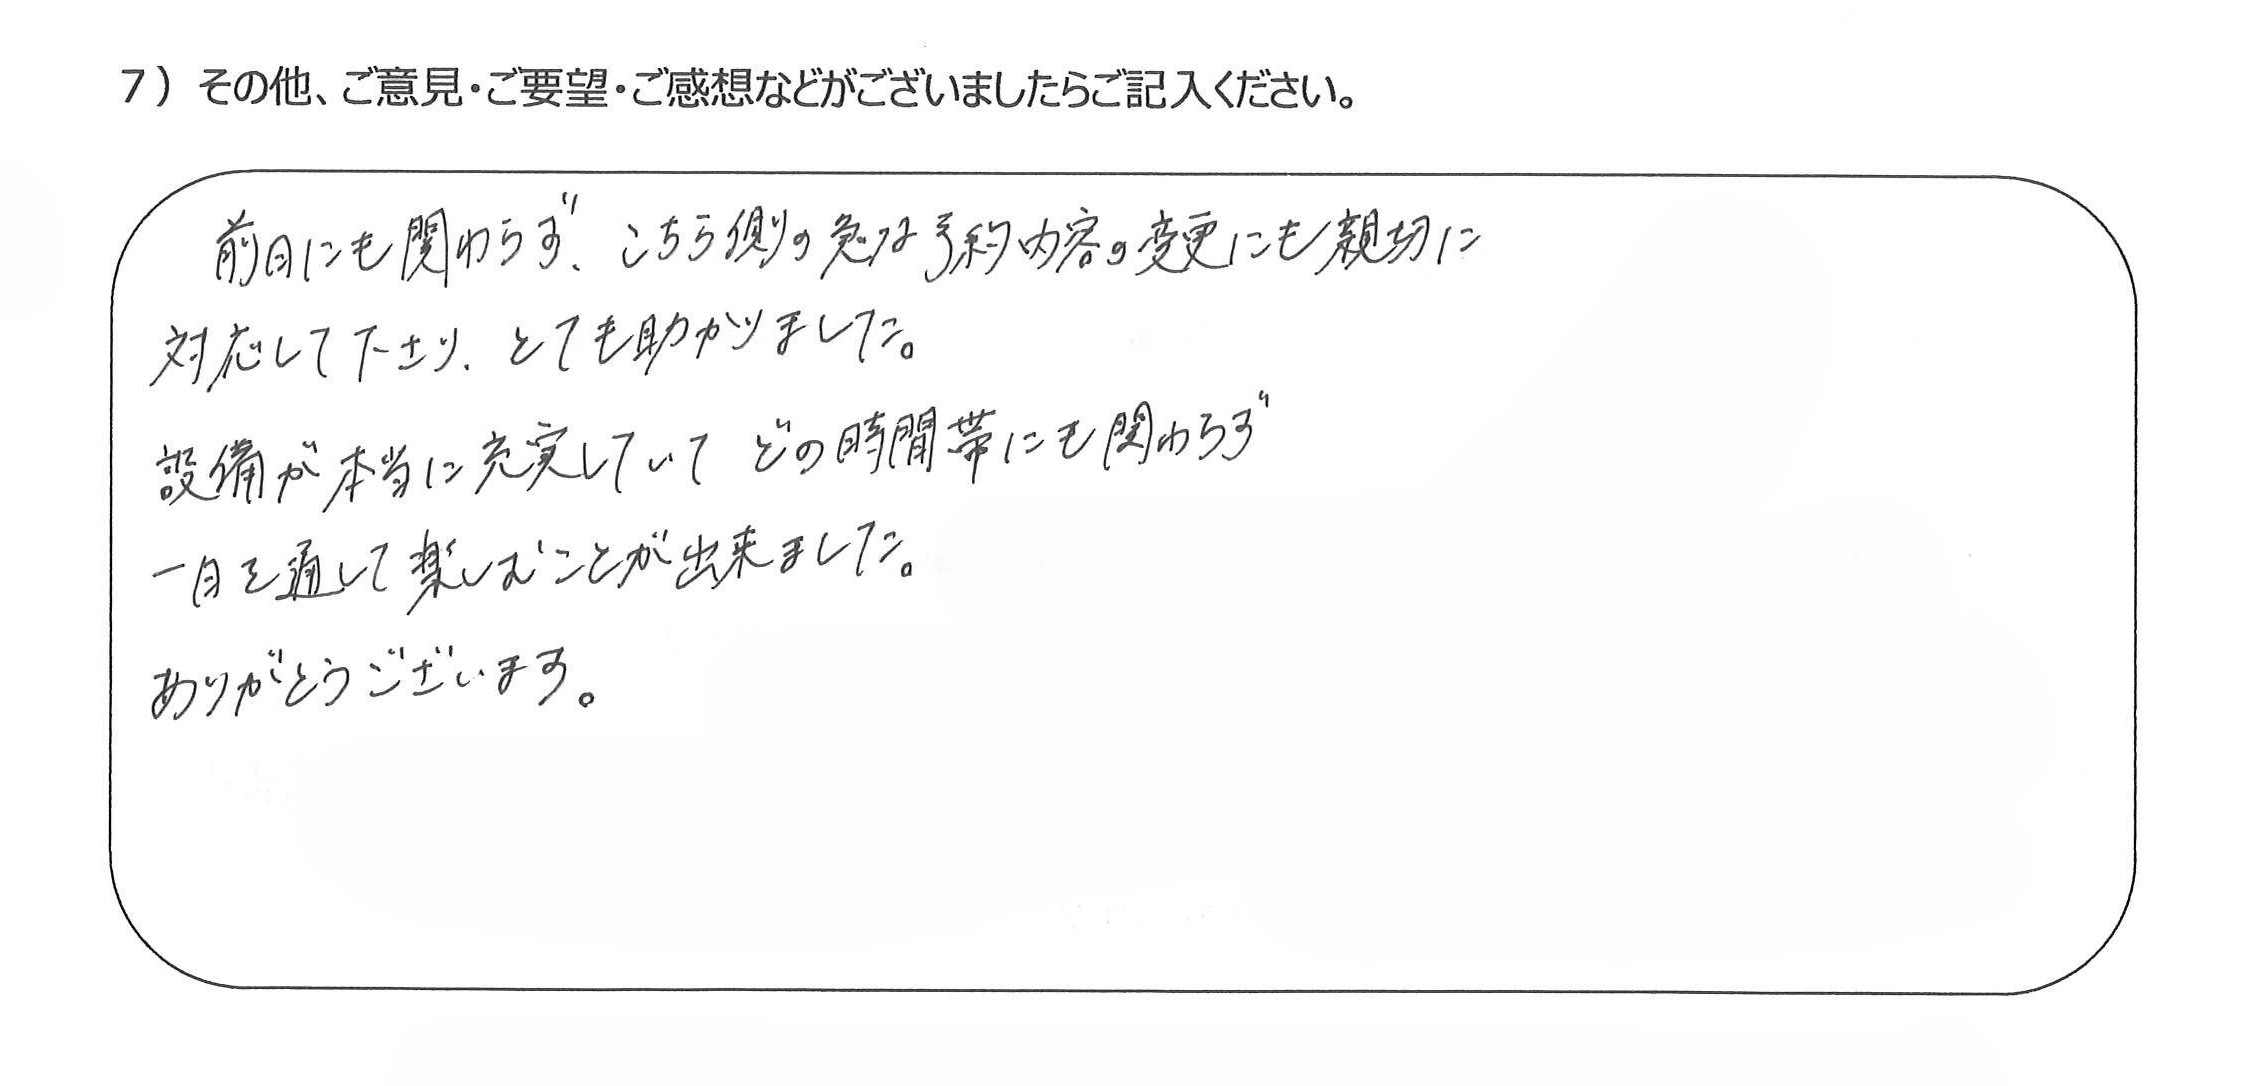 7）その他、ご意見・ご要望・ご感想などがございましたらご記入ください。
前日にも関わらず、こちら側の急な予約内容の変更にも親切に
対応して下さり、とても助かりました。
設備が本当に充実していて どの時間帯にも関わらず
一日を通して楽しむことが出来ました。
ありがとうございます。